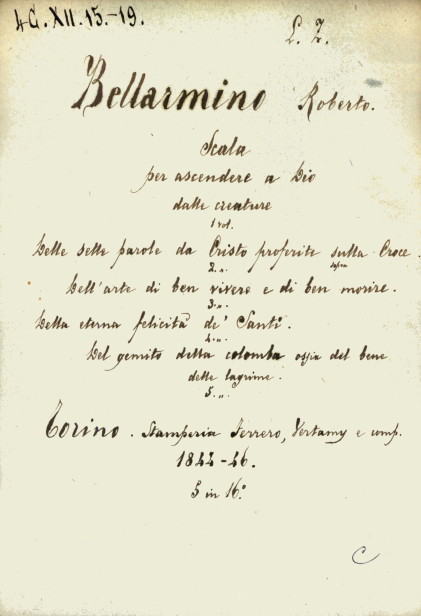 4G.XII.15.-19.
L. Z.
Bellarmino Roberto.
Scala
per ascendere a Dio
dalle creature
1 vol.
Delle sette parole da Cristo proferite sulla Croce.
2. „.
Dell'arte di ben vivere e di ben morire.
3. „.
Della eterna felicità de' Santi.
4. „.
Del gemito della colomba ossia del bene
delle lagrime.
5. „.
Torino. Stamperia Ferrero, Vertamy e comp.
1844-46.
5 in 16°
C